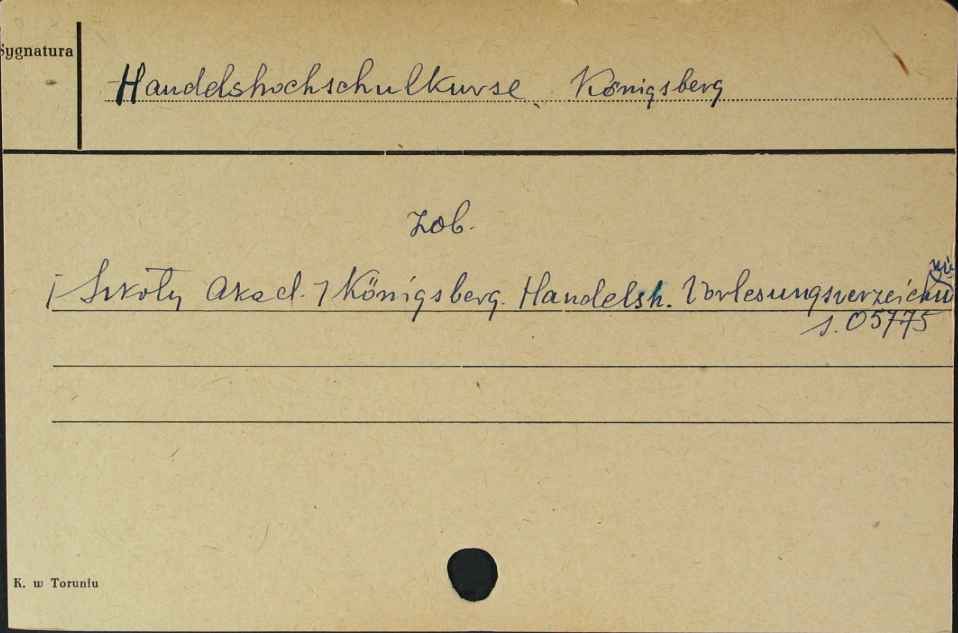 Sygnatura
Handelshochschulkurse Königsberg
zob.
/Szkoły Akad./ Königsberg. Handelsh. Vorlesungsverzeichnis
s. 05775
K. w Toruniu